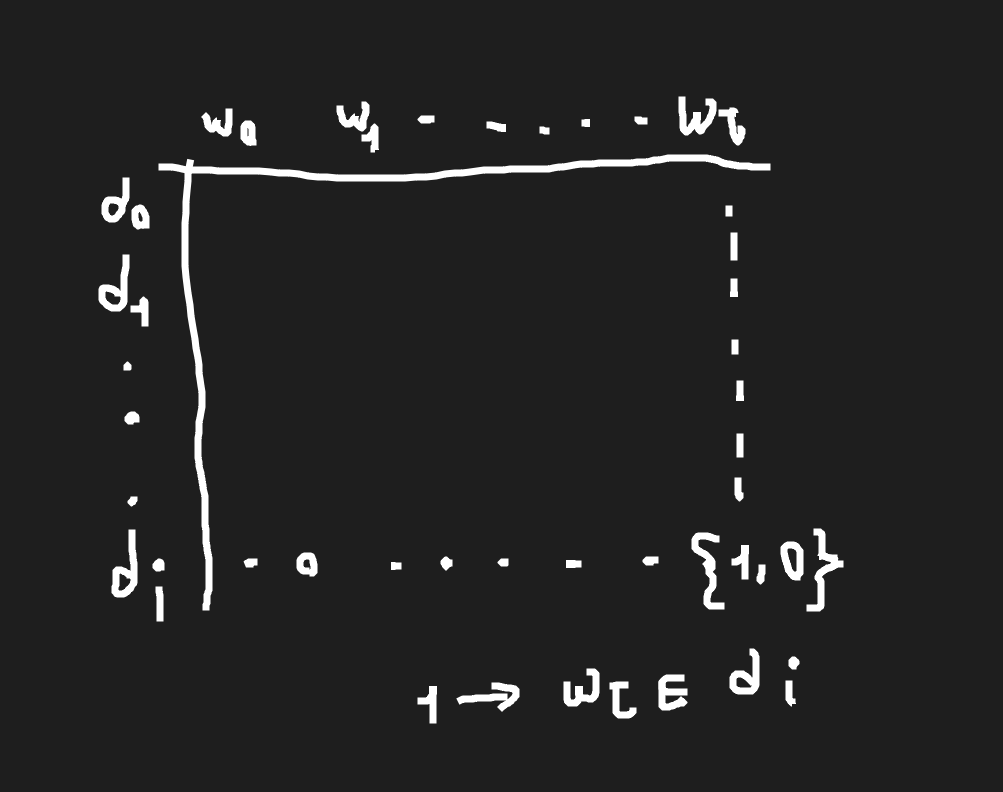 w₀ w₁ - - - . . - wτ
d₀
d₁
.
.
.
dᵢ - 0 - . . - - {1,0}
1 → wτ ∈ dᵢ